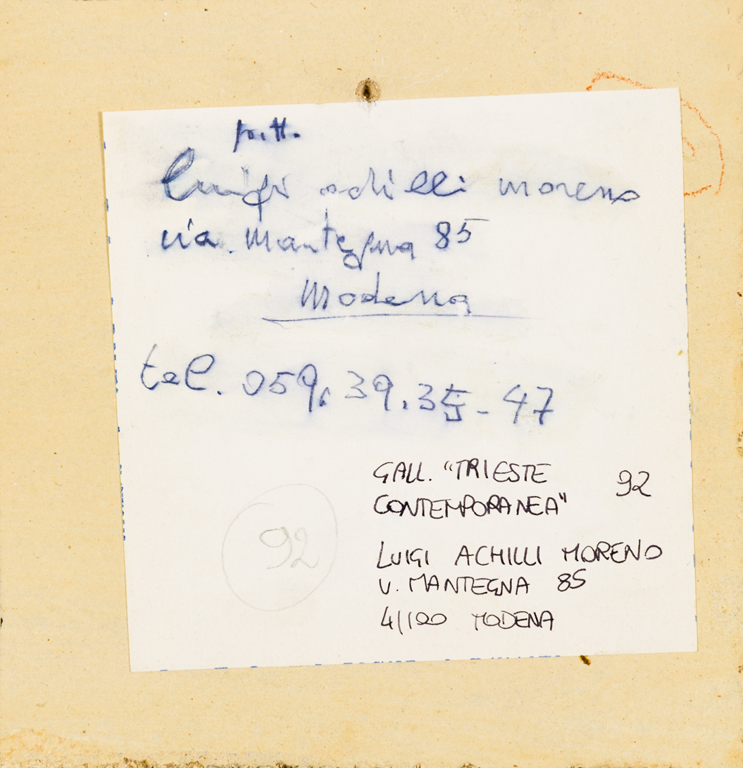 pitt.
Luigi achilli moreno
via. Mantegna 85
Modena
tel. 059.39.35-47
GALL. "TRIESTE
CONTEMPORANEA" 92
92
LUIGI ACHILLI MORENO
V. MANTEGNA 85
41100 MODENA